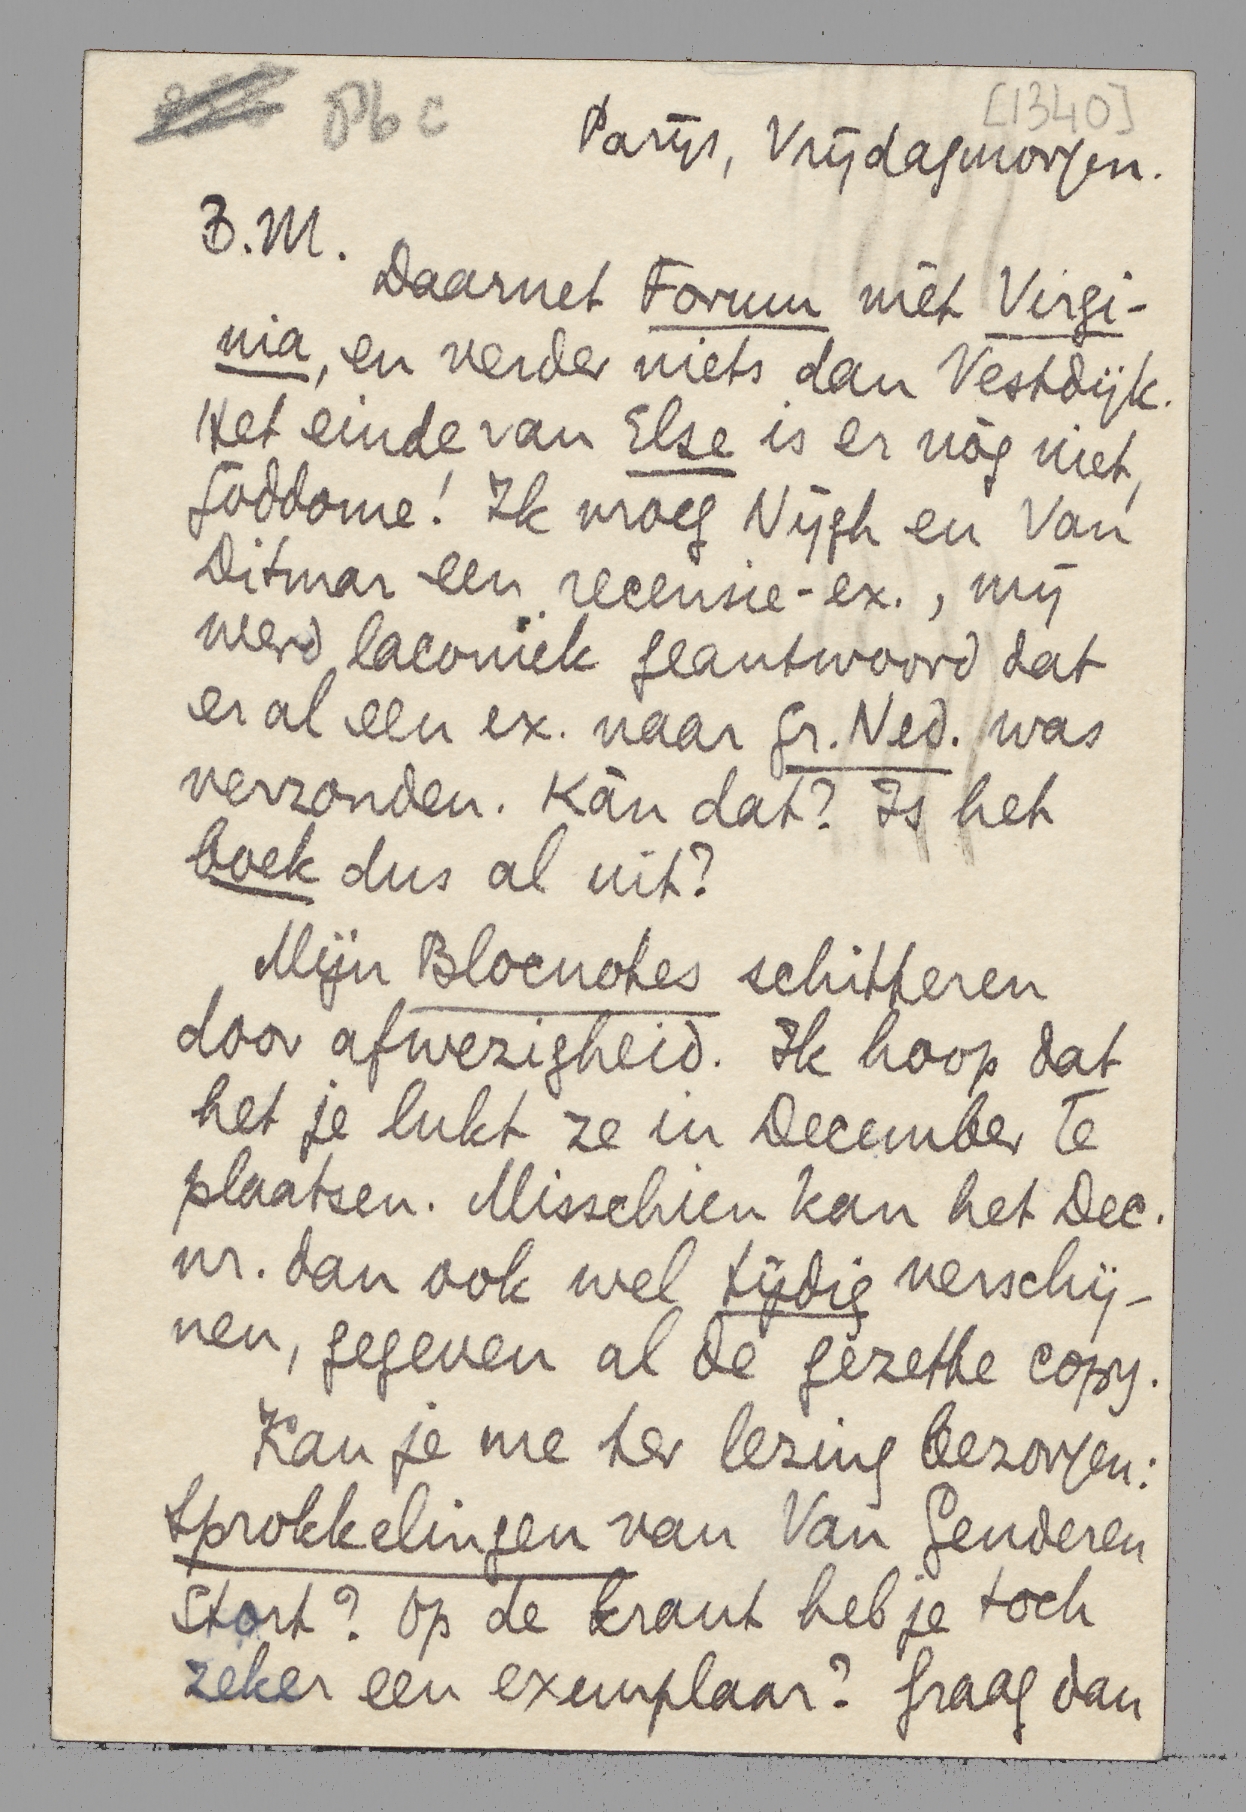 Pb c
[1340]
Parijs, Vrijdagmorgen.
B.M.
Daarnet Forum mèt Virgi-
nia, en verder niets dan Vestdijk.
Het einde van Else is er nòg niet,
goddome! Ik vroeg Nijgh en Van
Ditmar een recensie-ex., mij
werd laconiek geantwoord dat
er al een ex. naar Gr. Ned. was
verzonden. Kàn dat? Is het
boek dus al uit?
Mijn Blocnotes schitteren
door afwezigheid. Ik hoop dat
het je lukt ze in December te
plaatsen. Misschien kan het Dec.
nr. dan ook wel tijdig verschij-
nen, gegeven al de gezette copy.
Kan je me ter lezing bezorgen:
Sprokkelingen van Van Genderen
Stort? Op de krant heb je toch
zeker een exemplaar? Graag dan